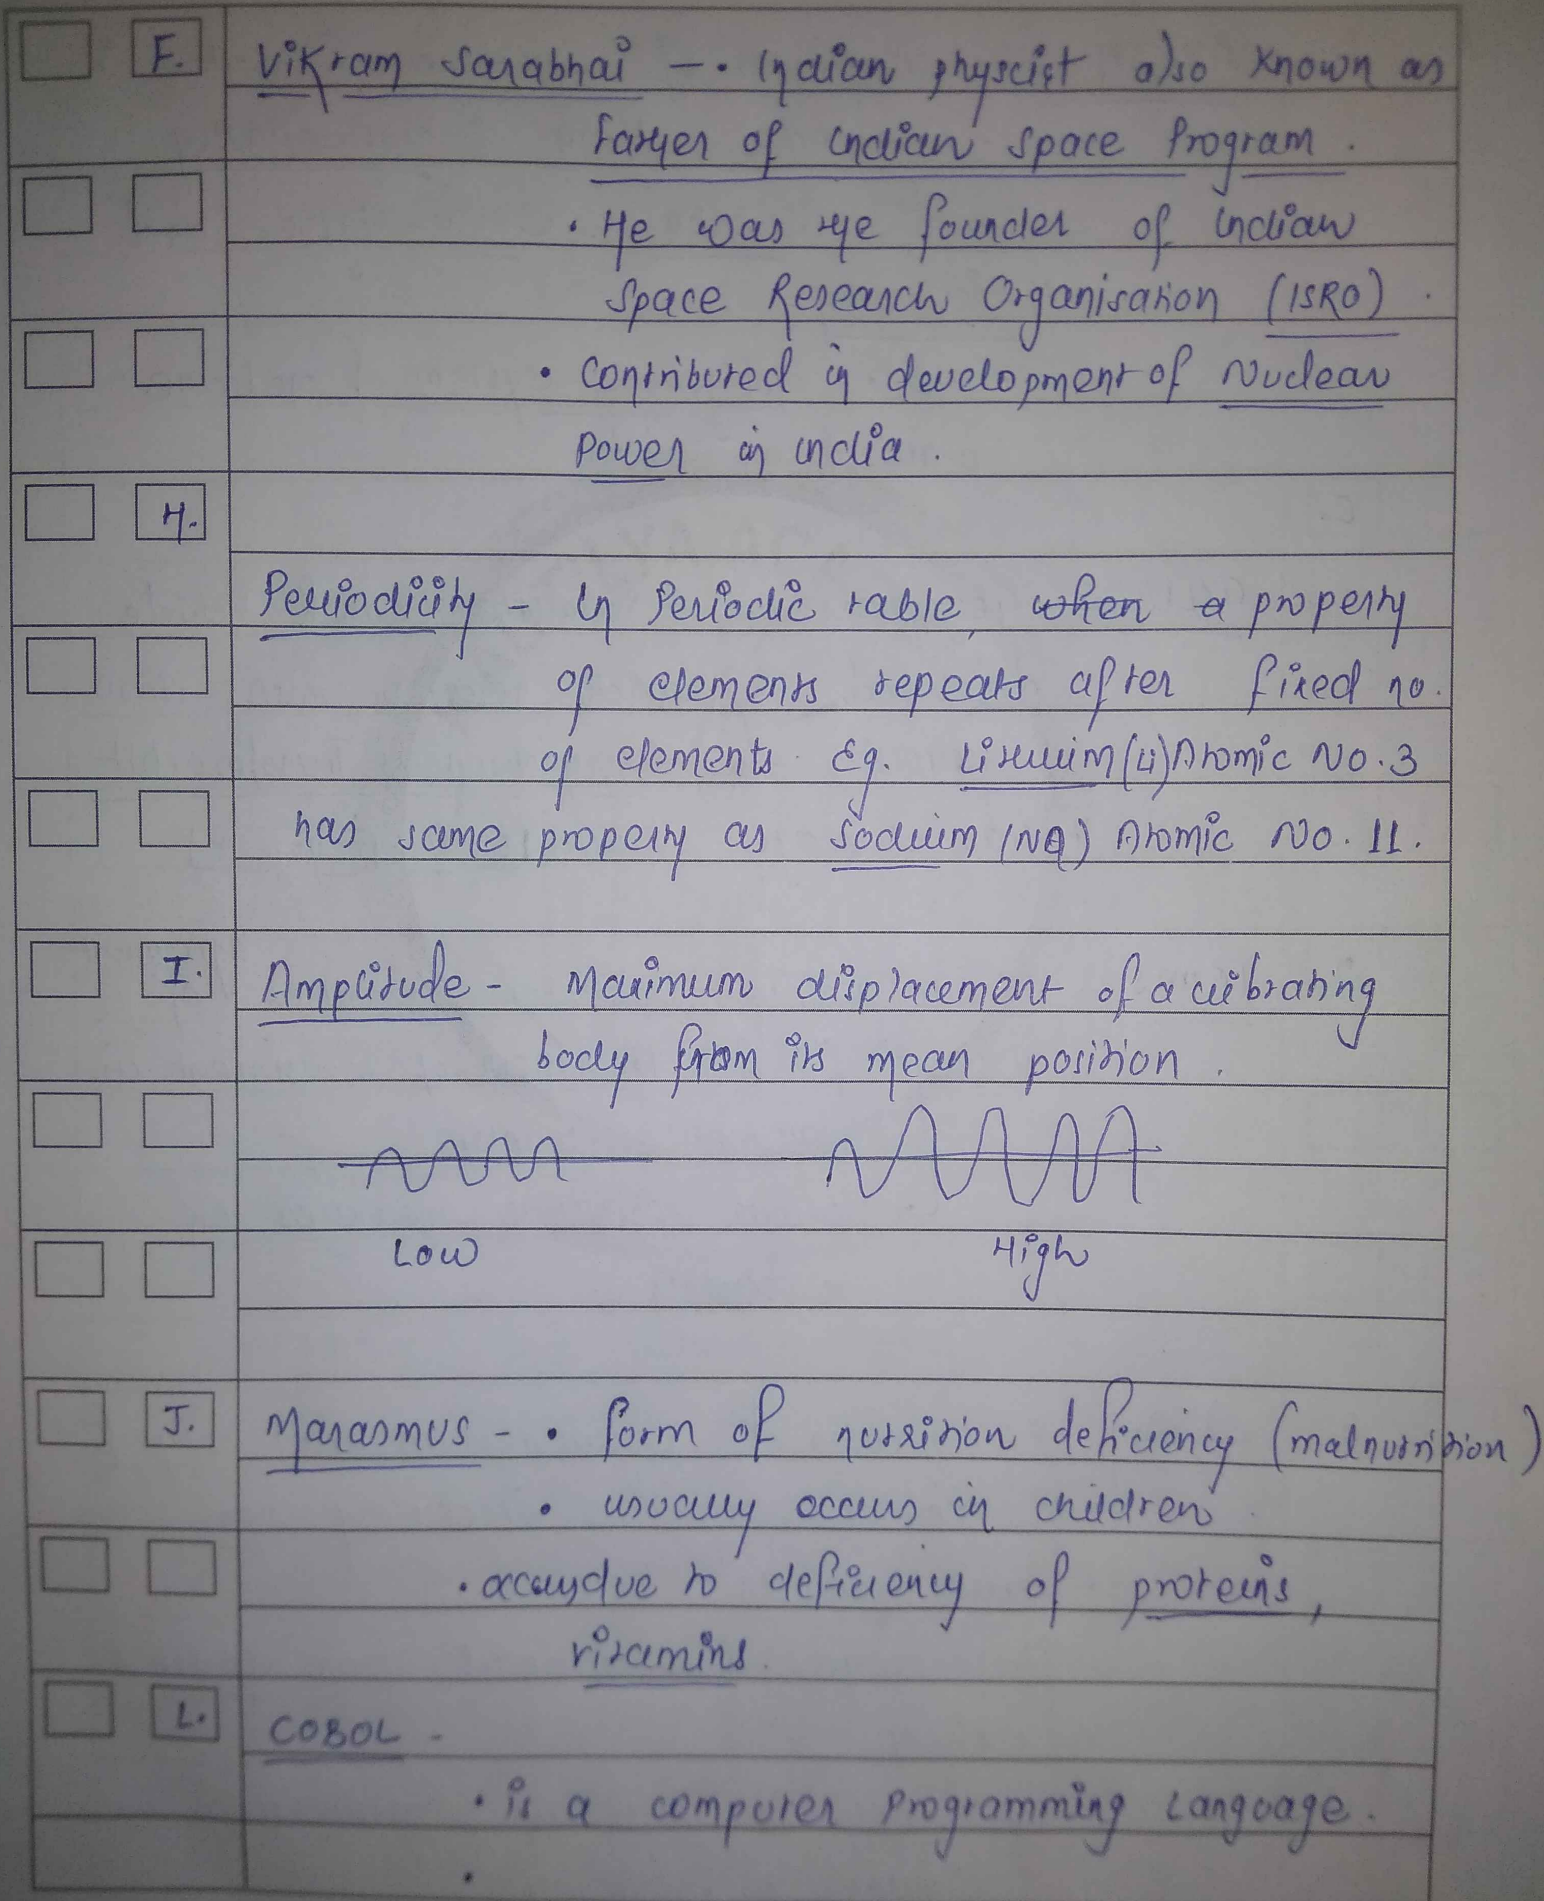 F. Vikram Sarabhai - • Indian physcist also known as
Father of Indian Space Program.
• He was the founder of Indian
Space Research Organisation (ISRO).
• Contributed in development of Nuclear
Power in India.
H.
Periodicity - In Periodic table, when a property
of elements repeats after fixed no.
of elements. Eg. Lithuim (Li) Atomic No. 3
has same property as Sodium (Na) Atomic No. 11.
I. Amplitude - Maximum displacement of a vibrating
body from its mean position.
Low High
J. Marasmus - • form of nutrition deficiency (malnutrition)
• usually occurs in children
• occurs due to deficiency of proteins,
vitamins.
L. COBOL -
• is a computer Programming Language.
•